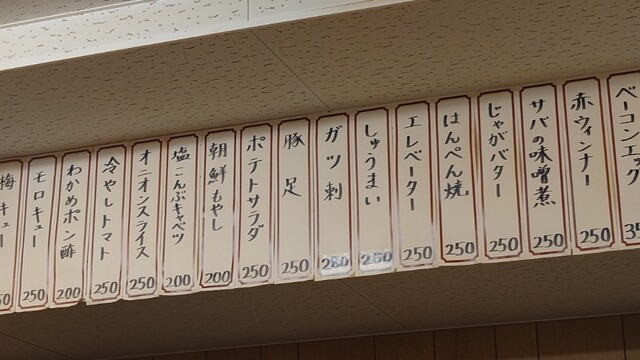 ベーコンエッグ
35
赤ウィンナー
250
サバの味噌煮
250
じゃがバター
250
はんぺん焼
250
エレベーター
250
しゅうまい
250
ガツ刺
280
豚足
250
ポテトサラダ
250
朝鮮もやし
200
塩こんぶキャベツ
200
オニオンスライス
250
冷やしトマト
250
わかめポン酢
200
モロキュー
250
梅キュー
50